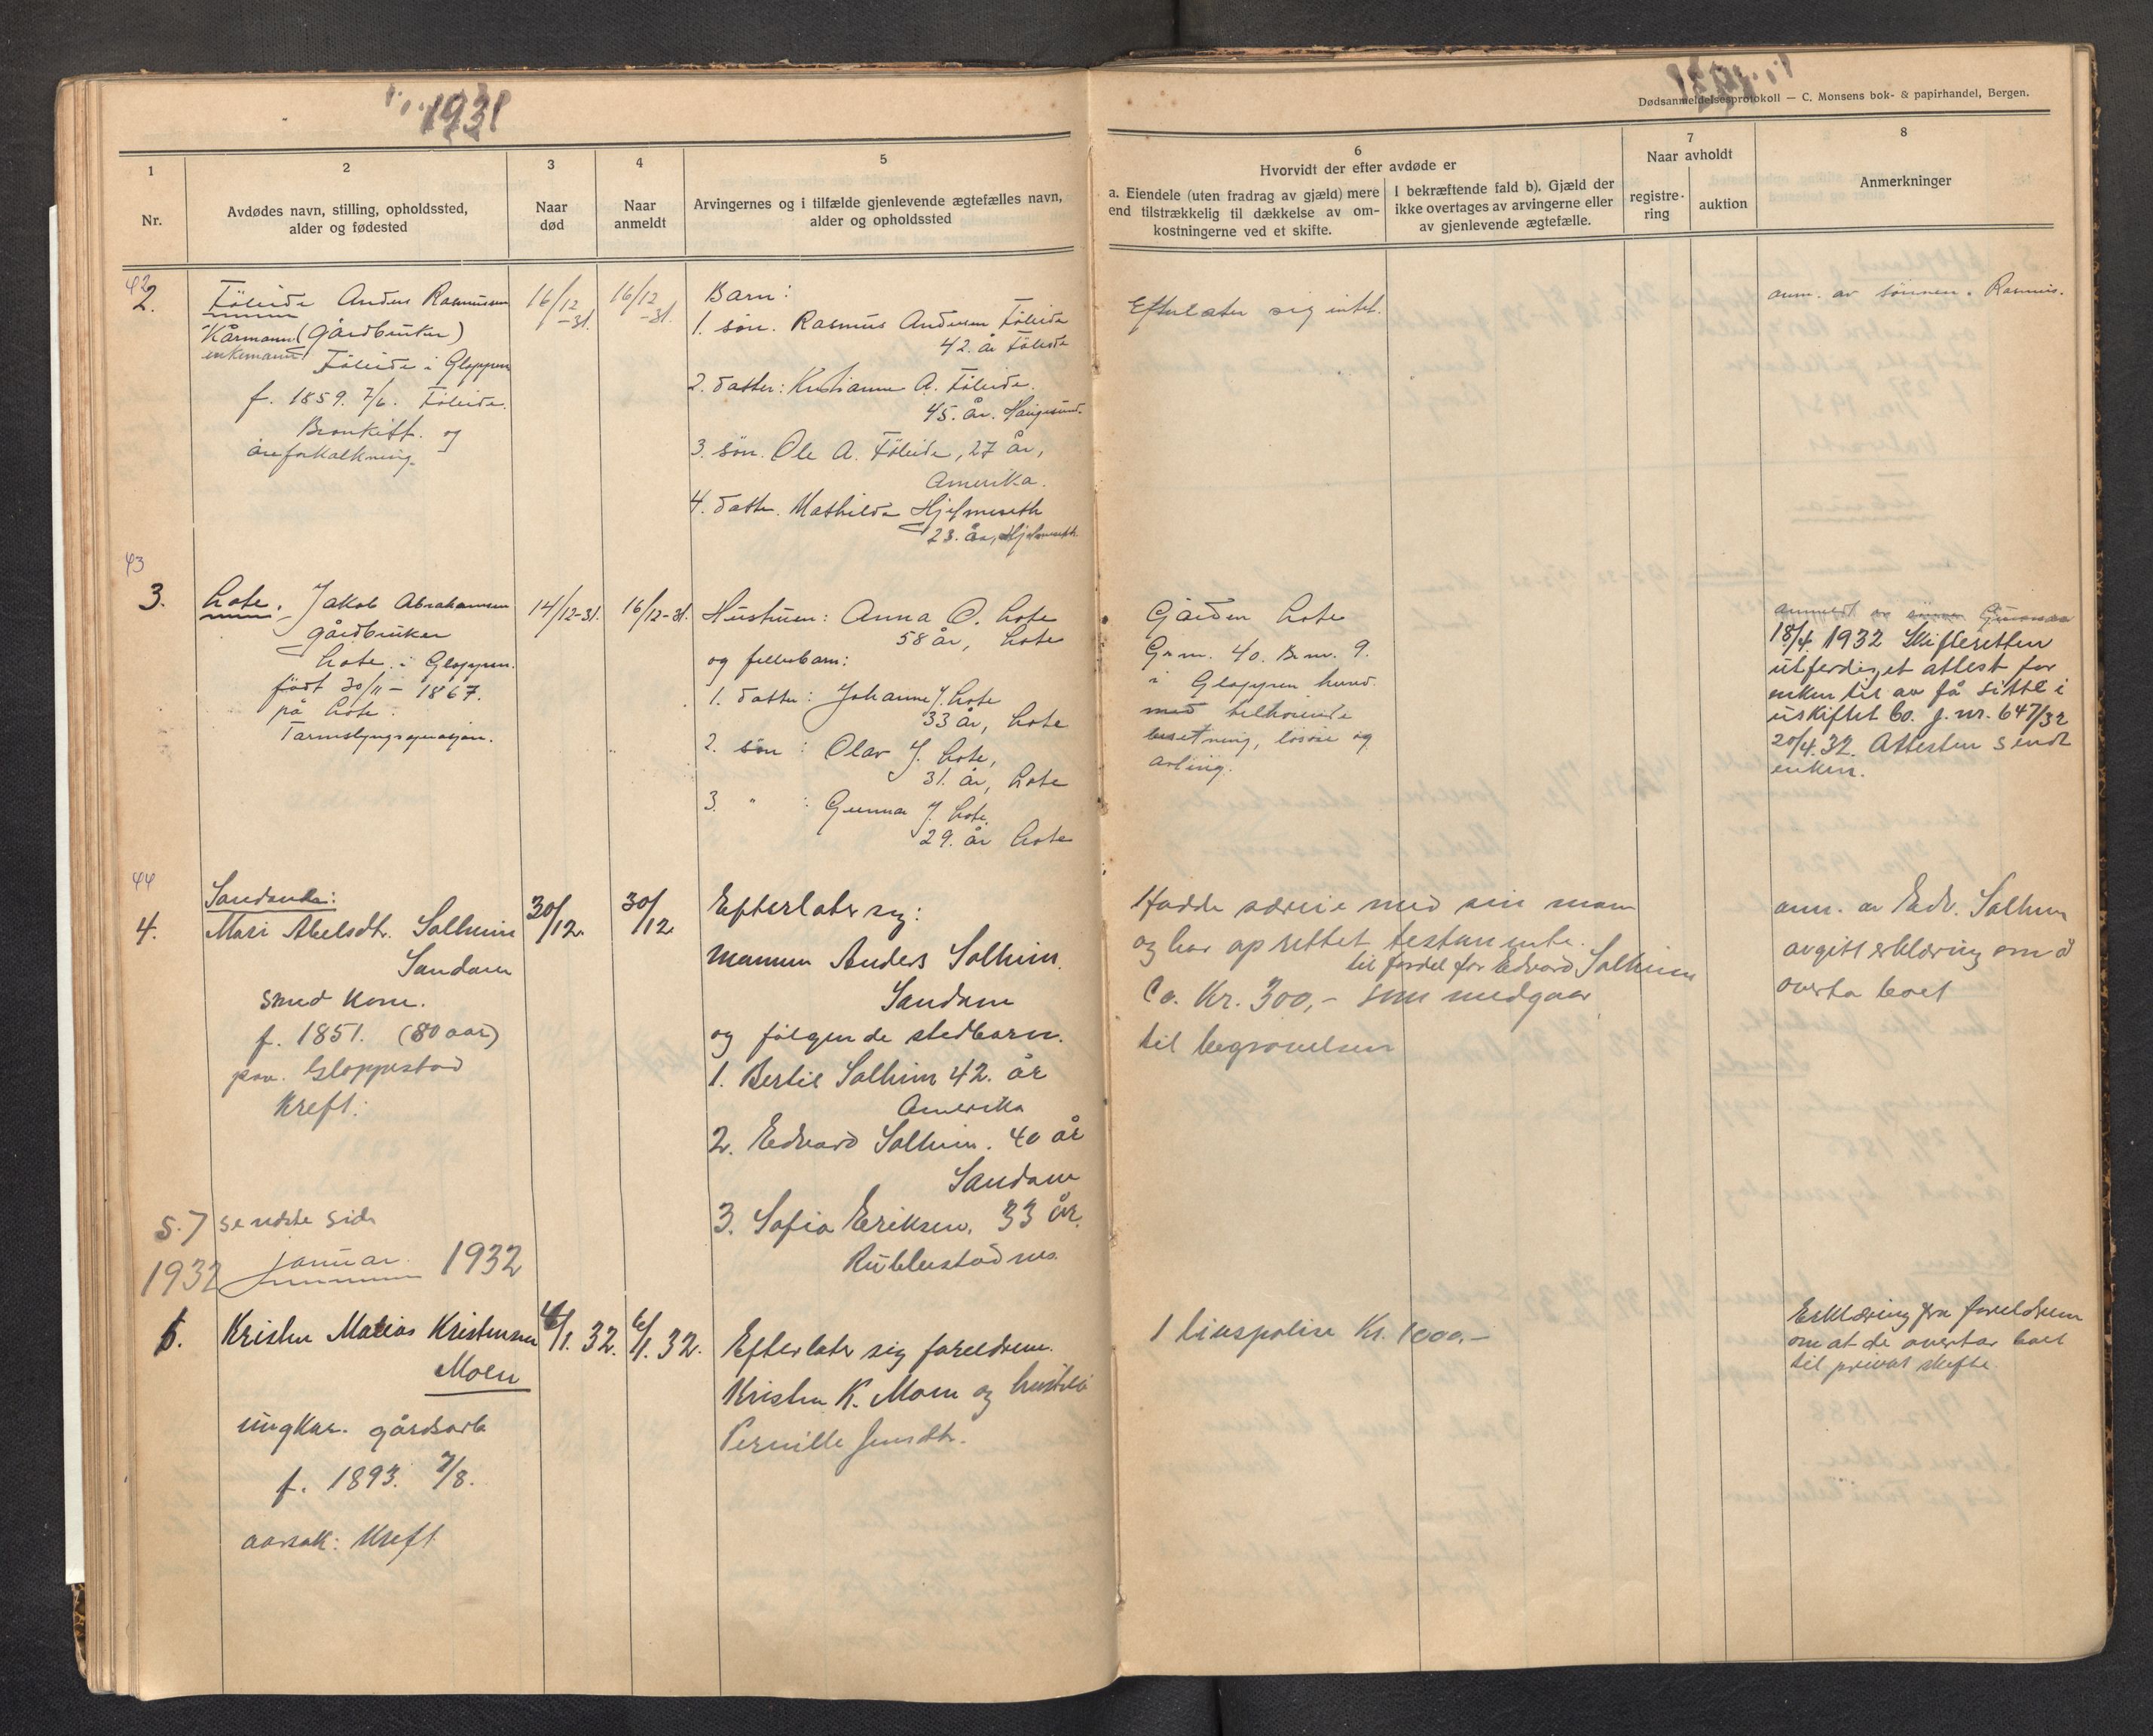 1931
Dødsanmeldelsesprotokoll — C. Monsens bok- & papirhandel, Bergen.
1
Nr.
2
Avdødes navn, stilling, opholdssted,
alder og fødested
3
Naar
død
4
Naar
anmeldt
5
Arvingernes og i tilfælde gjenlevende ægtefælles navn,
alder og opholdssted
6
Hvorvidt der efter avdøde er
a. Eiendele (uten fradrag av gjæld) mere
end tilstrækkelig til dækkelse av om-
kostningerne ved et skifte.
I bekræftende fald b). Gjæld der
ikke overtages av arvingerne eller
av gjenlevende ægtefælle.
7
Naar avholdt
registre-
ring
auktion
8
Anmerkninger
42
2.
Föleide Anders Rasmussen
Kårmann (gårdbruker)
enkemann
Föleide i Gloppen
f. 1859. 7/6. Föleide.
Bronkitt. og
åreforkalkning.
16/12
-31.
16/12
-31.
Barn:
1. søn. Rasmus Andersen Föleide
42. år Föleide
2. datter: Kristianne A. Föleide.
45. år. Haugesund.
3. søn. Ole A. Föleide, 27 år,
Amerika.
4. datter. Mathilde Hjelmeseth
23. år, Hjelmeseth.
Efterlater sig intet.
anm. av sønnen. Rasmus.
43
3.
Lote. Jakob Abrahamsen
gårdbruker
Lote i Gloppen.
født 30/11 - 1867.
på Lote.
Tarmslyngsoperasjon.
14/12-31.
16/12-31.
Hustruen: Anna O. Lote
58 år, Lote
og fellesbarn:
1. datter: Johanne J. Lote
33 år, Lote
2. søn : Olav J. Lote,
31. år, Lote
3. " : Gunnar J. Lote.
29. år Lote
Gården Lote
Gnr. 40. Bnr. 9.
i Gloppen herred.
med tilhørende
besetning, løsøre og
avling.
anmeldt av sønnen Gunnar
18/4. 1932 Skifteretten
utferdiget attest for
enken til av få sitte i
uskiftet bo. j. nr. 647/32
20/4. 32. Attesten sendt
enken.
44
4.
Sandane:
Mari Abelsdtr. Solheim
Sandane
smed kone.
f. 1851. (80 aar)
paa. Gloppestad
Kreft.
30/12.
30/12
Efterlater sig:
mannen Anders Solheim.
Sandane
og følgende stedbarn.
1. Bertil Solheim 42. år
Amerika
2. Edvard Solheim. 40 år
Sandane
3. Sofia Eriksen. 33 år.
Hadde særeie med sin mann
og har oprettet testamente.
til fordel for Edvard Solheim
Ca. Kr. 300,- som medgaar
til begravelsen
anm. av Edv. Solheim
avgitt erklæring om å
overta boet
S. 7 sendte side
1932 januar. 1932
1.
Kristen Matias Kristensen
Moen
ungkar. gårdsarb
f. 1893. 7/8.
aarsak: Kreft
/1. 32.
6/1. 32.
Efterlater sig foreldrene.
Kristen K. Moen og hustru
Pernille Jensdtr.
1 livspolise Kr. 1000.-
Erklæring fra foreldrene
om at de overtar boet
til privat skifte.